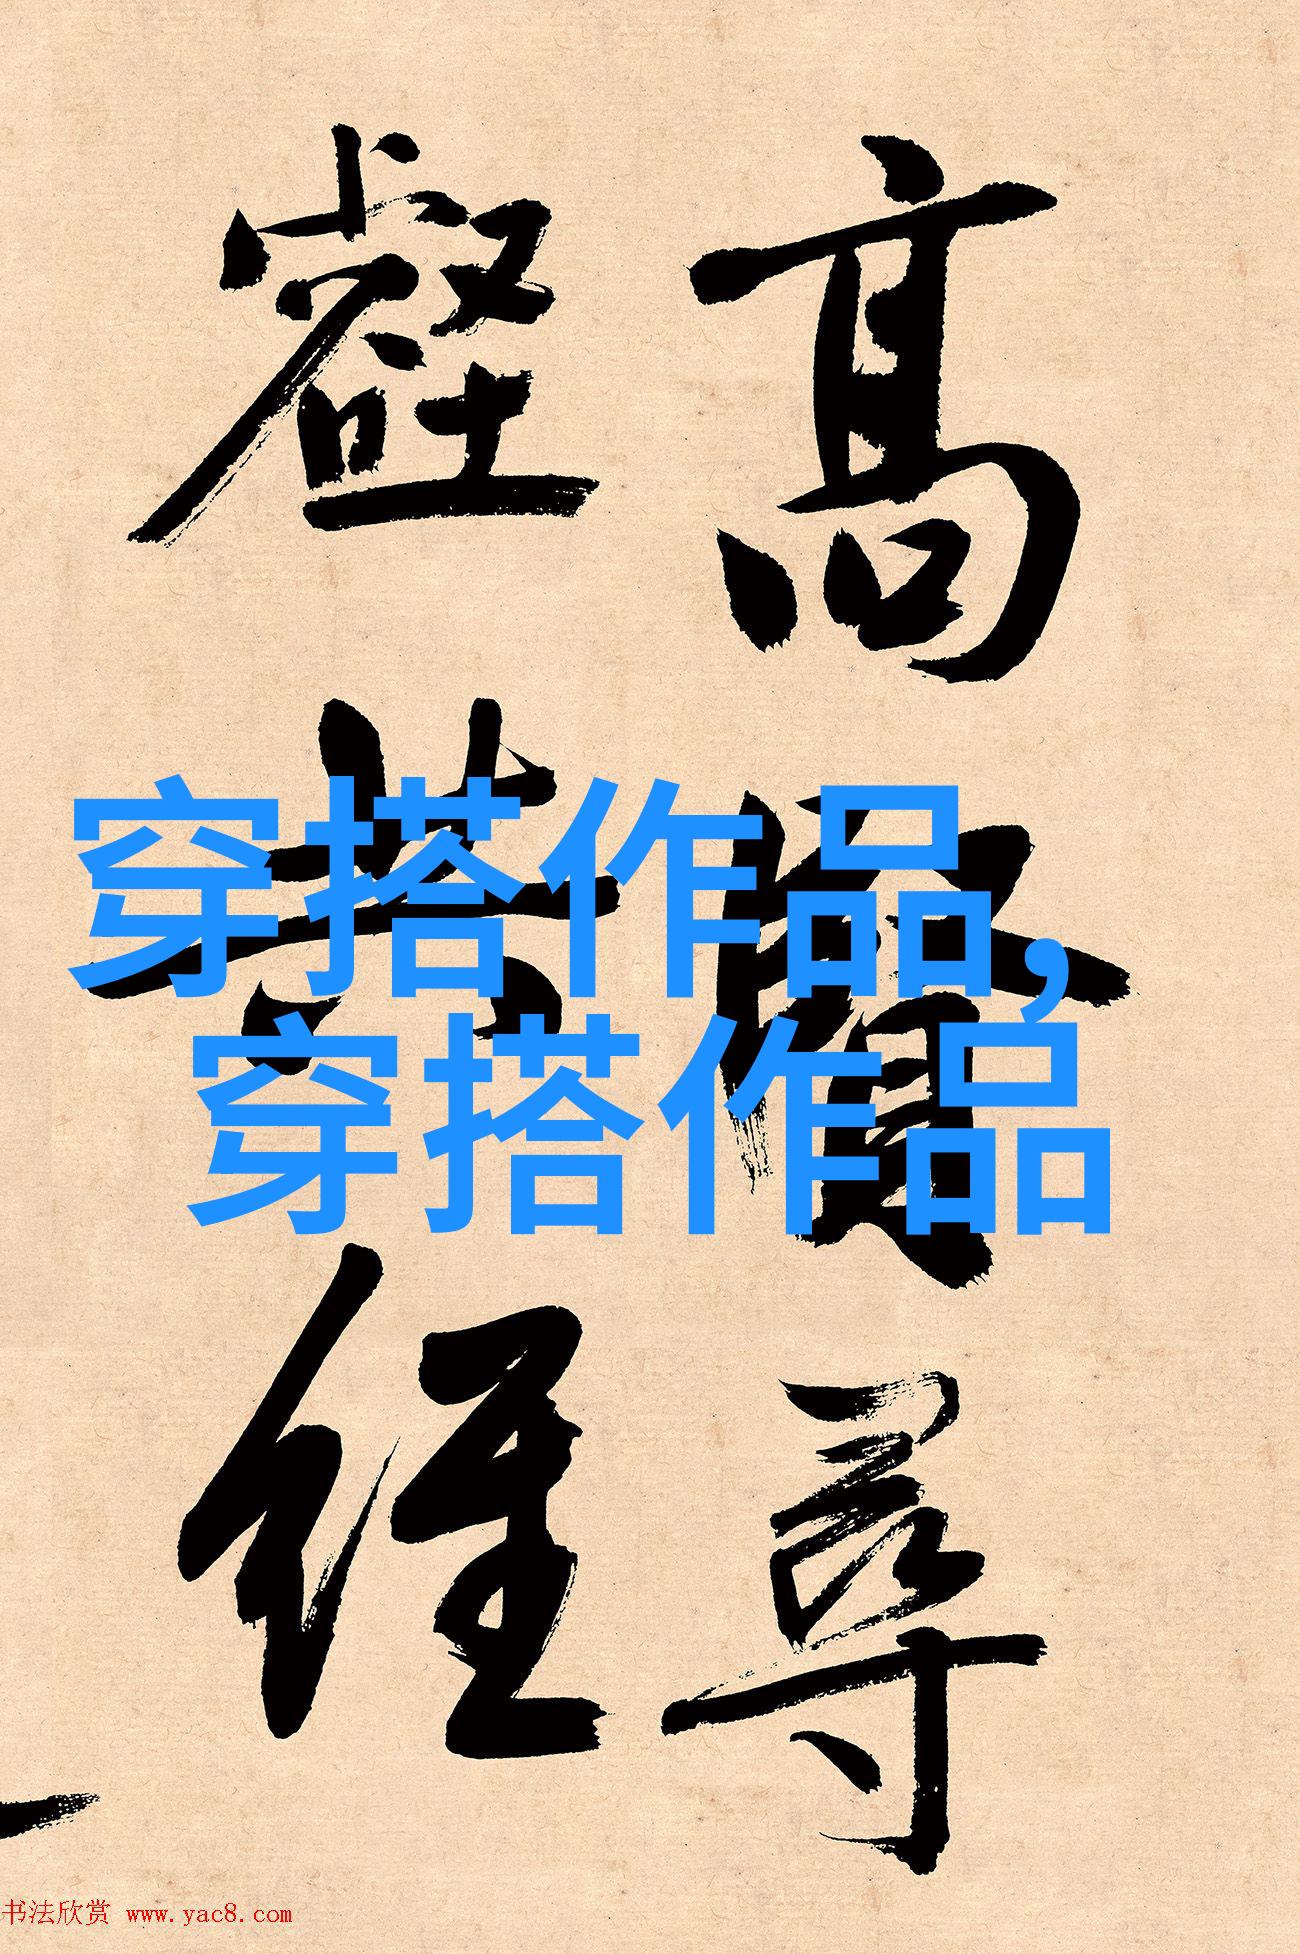 高
尋
壑
經
穿搭作品,
穿搭作品
书法欣赏 www.yac8.com